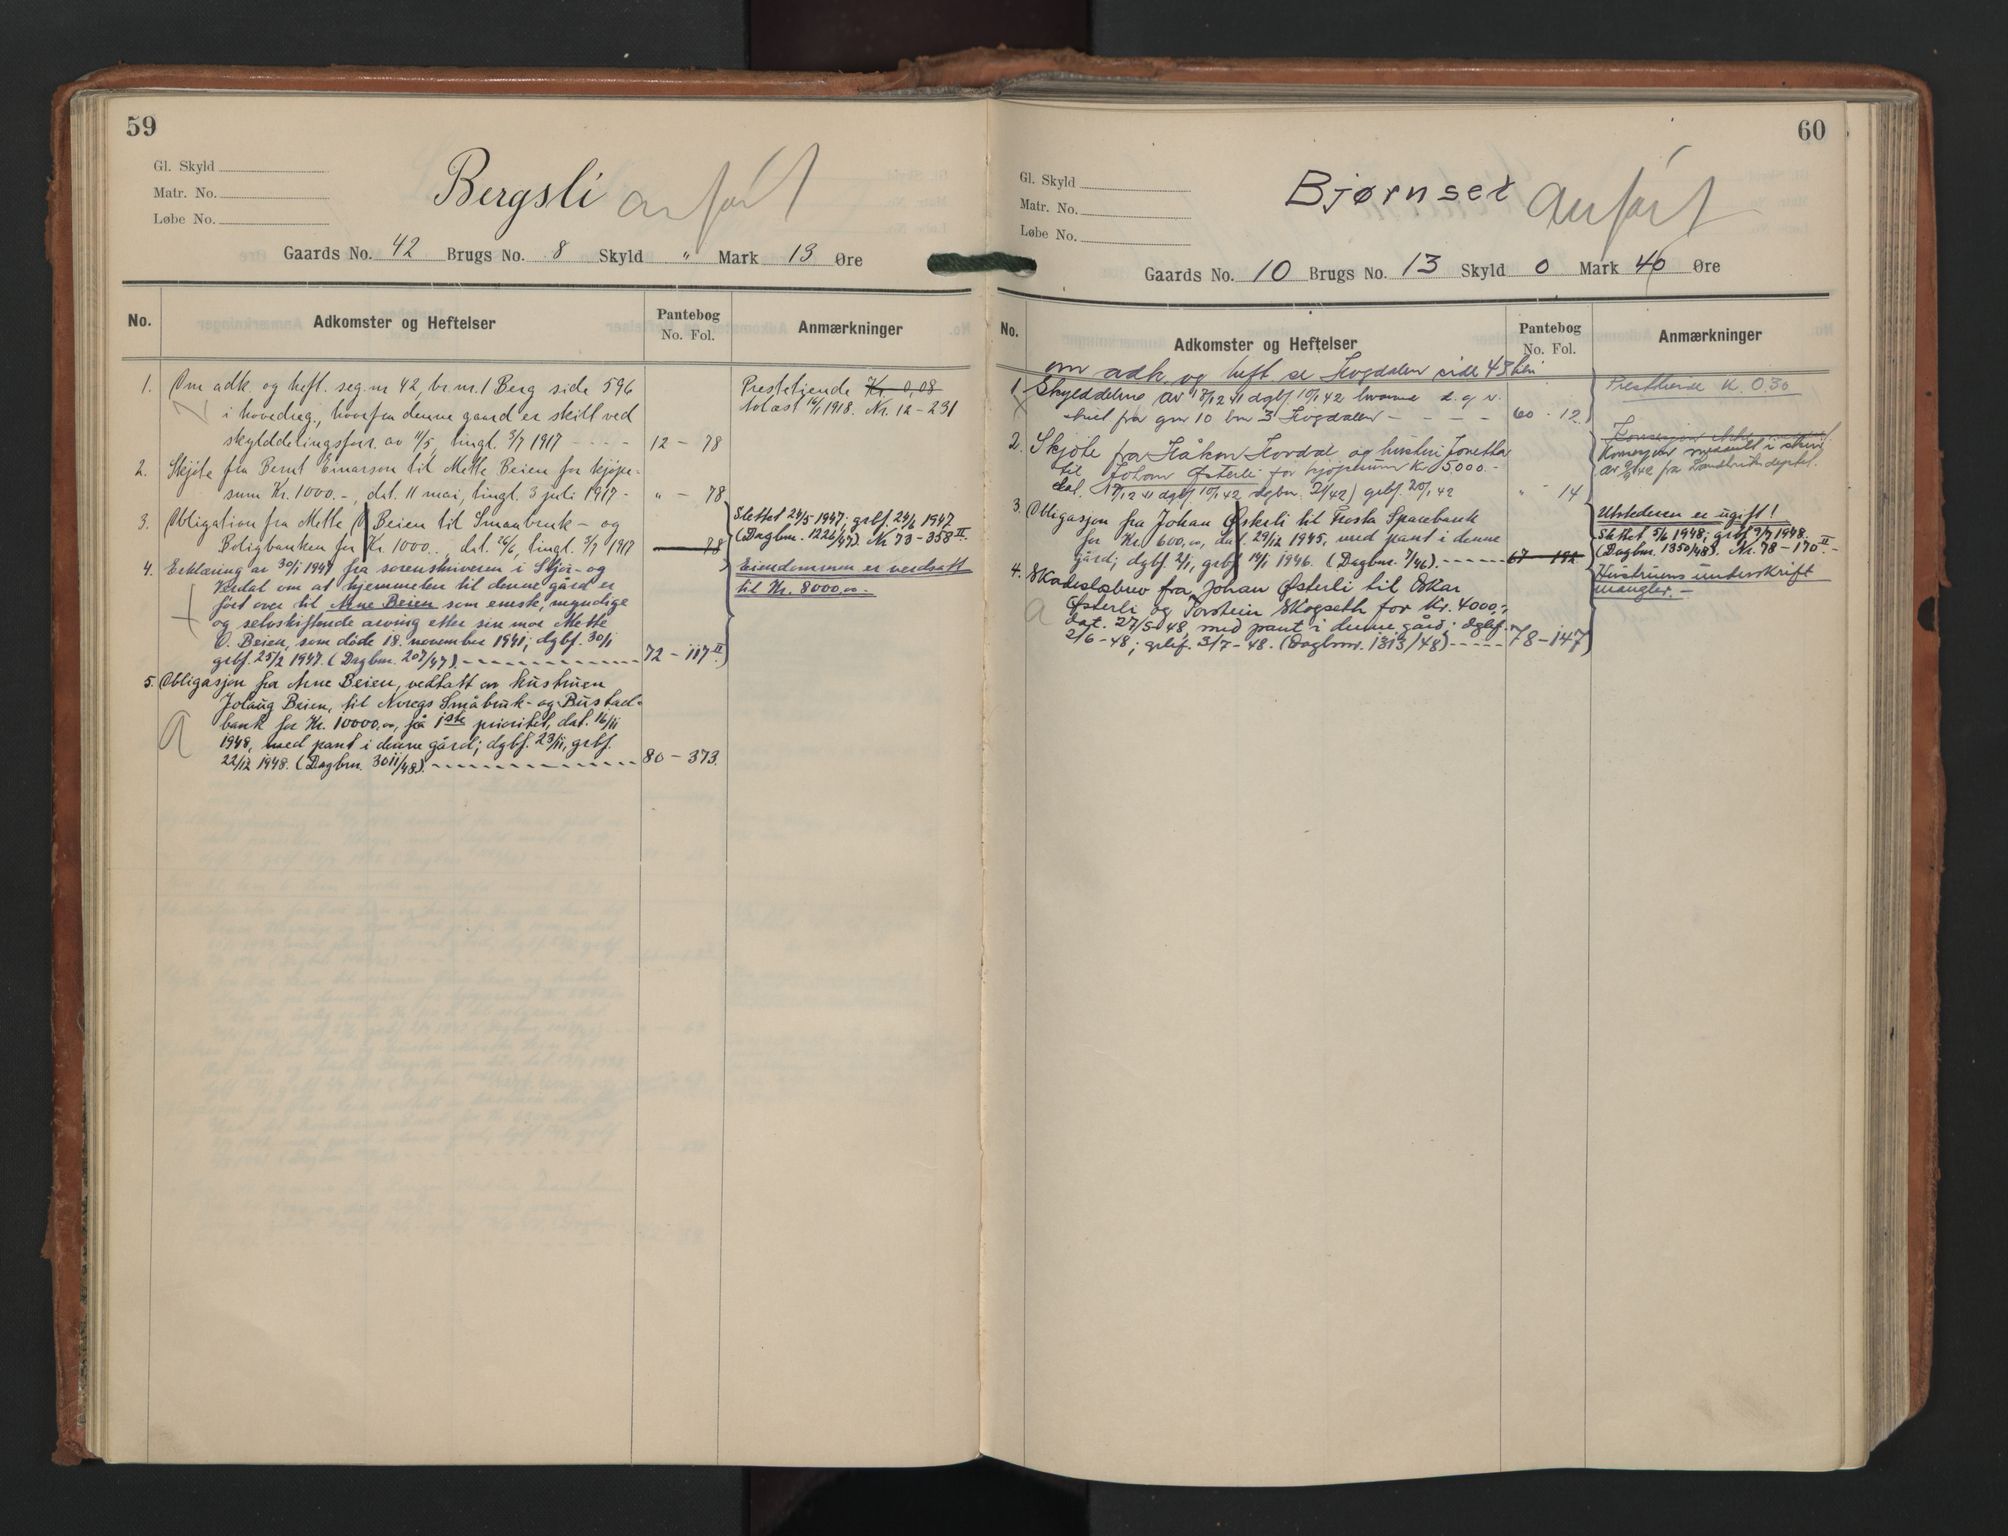 59
Gl. Skyld
Matr. No.
Løbe No.
Bergsli anført
Gaards No. 42 Brugs No. 8 Skyld " Mark 13 Øre
No. Adkomster og Heftelser Pantebog No. Fol. Anmærkninger
1. Om adk. og heft. se g.nr 42, br.nr. 1 Berg side 596
i hovedreg., hvorfra denne gaard er skilt ved
skylddelingsforr. av 11/5, tingl. 3/7 1917 - - - - 12 - 78
Prestetiende Kr. 0,08
avløst 16/1 1918. Nr. 12 - 231
2. Skjøte fra Bernt Einarson til Mette Beien for kjøpe-
sum Kr. 1000.-, dat. 11 mai, tingl. 3 juli 1917 - " - 78
3. Obligation fra Mette O Beien til Smaabruk- og
Boligbanken for Kr. 1000.., dat. 26/6, tingl. 3/7 1917 78
Slettet 24/5 1947; grbf. 24/6 1947
(Dagbnr. 1226/47). Nr 73 - 358 II.
4. Erklæring av 30/1 1947 fra sorenskriveren i Stjør- og
Verdal om at hjemmelen til denne gård er
ført over til Arne Beien som eneste, myndige
og selvskiftende arving etter sin mor Mette
O. Beien, som døde 18. november 1941; dgbf. 30/1
grbf. 25/2 1947. (Dagbnr. 207/47). - - - - 72 - 117 II
Eiendommen er verdsatt
til Kr. 8000,00.-
5. Obligasjon fra Arne Beien, vedtatt av hustruen
Jolaug Beien, til Noregs Småbruk- og Bustad-
bank for Kr. 10000,00, på 1ste prioritet, dat. 16/11
1948, med pant i denne gård; dgbf. 23/11, grbf.
22/12 1948. (Dagbnr. 3011/48). - - - - 80 - 373.
60
Gl. Skyld
Matr. No.
Løbe No.
Bjørnset Anført
Gaards No. 10 Brugs No. 13 Skyld 0 Mark 40 Øre
No. Adkomster og Heftelser Pantebog No. Fol. Anmærkninger
om adk. og heft se Kogdalen side 43
1. Skylddeling av 18/12 41 dgbf 10/1 42 hvorved d. g. er
skilt fra gnr 10 bnr 3 - - - - 60 - 12.
2. Skjøte fra Håkon og hustru
til Johan Østerli for kjøpesum Kr 5000.-
dat. 19/12 41 dgbf 10/1 42 grbf. 20/1 42 " 14
3. Obligasjon fra Johan Østerli til Frosta Sparebank
for Kr. 600,00, dat. 29/12 1945, med pant i denne
gård; dgbf. 2/1, grbf 14/1 1946. (Dagbnr. 7/46). - - - - 67 - 192
Utstederen er ugift!
Slettet 5/6 1948; grbf 9/7 1948.
(Dagbnr. 1350/48). Nr. 78 - 170 II
4. Skadesløsbrev fra Johan Østerli til Oskar
Østerli og Torstein Skogseth for Kr. 4000,-
dat. 27/5 48, med pant i denne gård; dgbf.
2/6 - 48; grbf. 3/7 - 48. (Dagbnr. 1313/48) - - - - 78 - 147
Hustruens underskrift
mangler. -